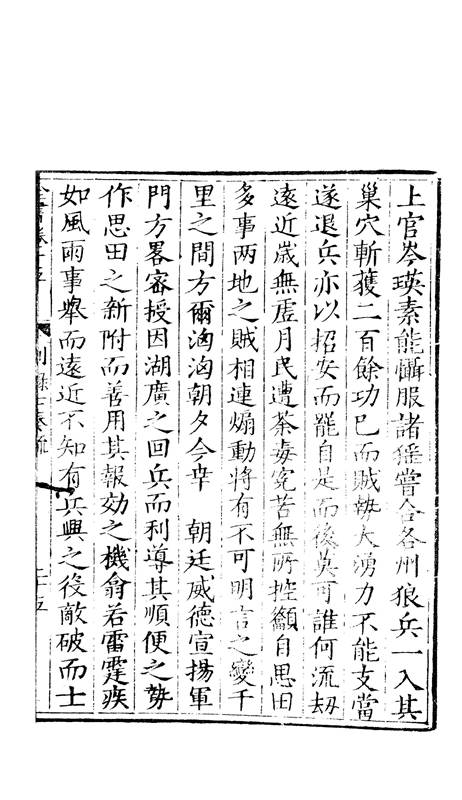 上官岑瑛素能懾服諸猺嘗合各州狼兵一入其
巢穴斬獲二百餘功巳而賊勢大湧力不能支當
遂退兵亦以招安而罷自是而後莫可誰何流刼
遠近歲無虗月民遭荼毒寃苦無所控籲自思田
多事兩地之賊相連煽動將有不可明言之變千
里之間方爾洶洶朝夕今幸　朝廷威德宣揚軍
門方畧審授因湖廣之回兵而利導其順便之勢
作思田之新附而善用其報効之機翕若雷霆疾
如風雨事舉而遠近不知有兵興之役敵破而士
全書卷十五
別録七奏疏